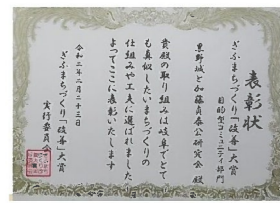 表彰状
ぎふまちづくり「改善」大賞
目的型コミュニティ部門
黒野城と加藤貞泰公研究会 殿
貴殿の取り組みは岐阜でとて
も真似したいまちづくりの
仕組みや工夫に選ばれました
よってここに表彰いたします
令和二年二月二十三日
ぎふまちづくり「改善」大賞
実行委員会